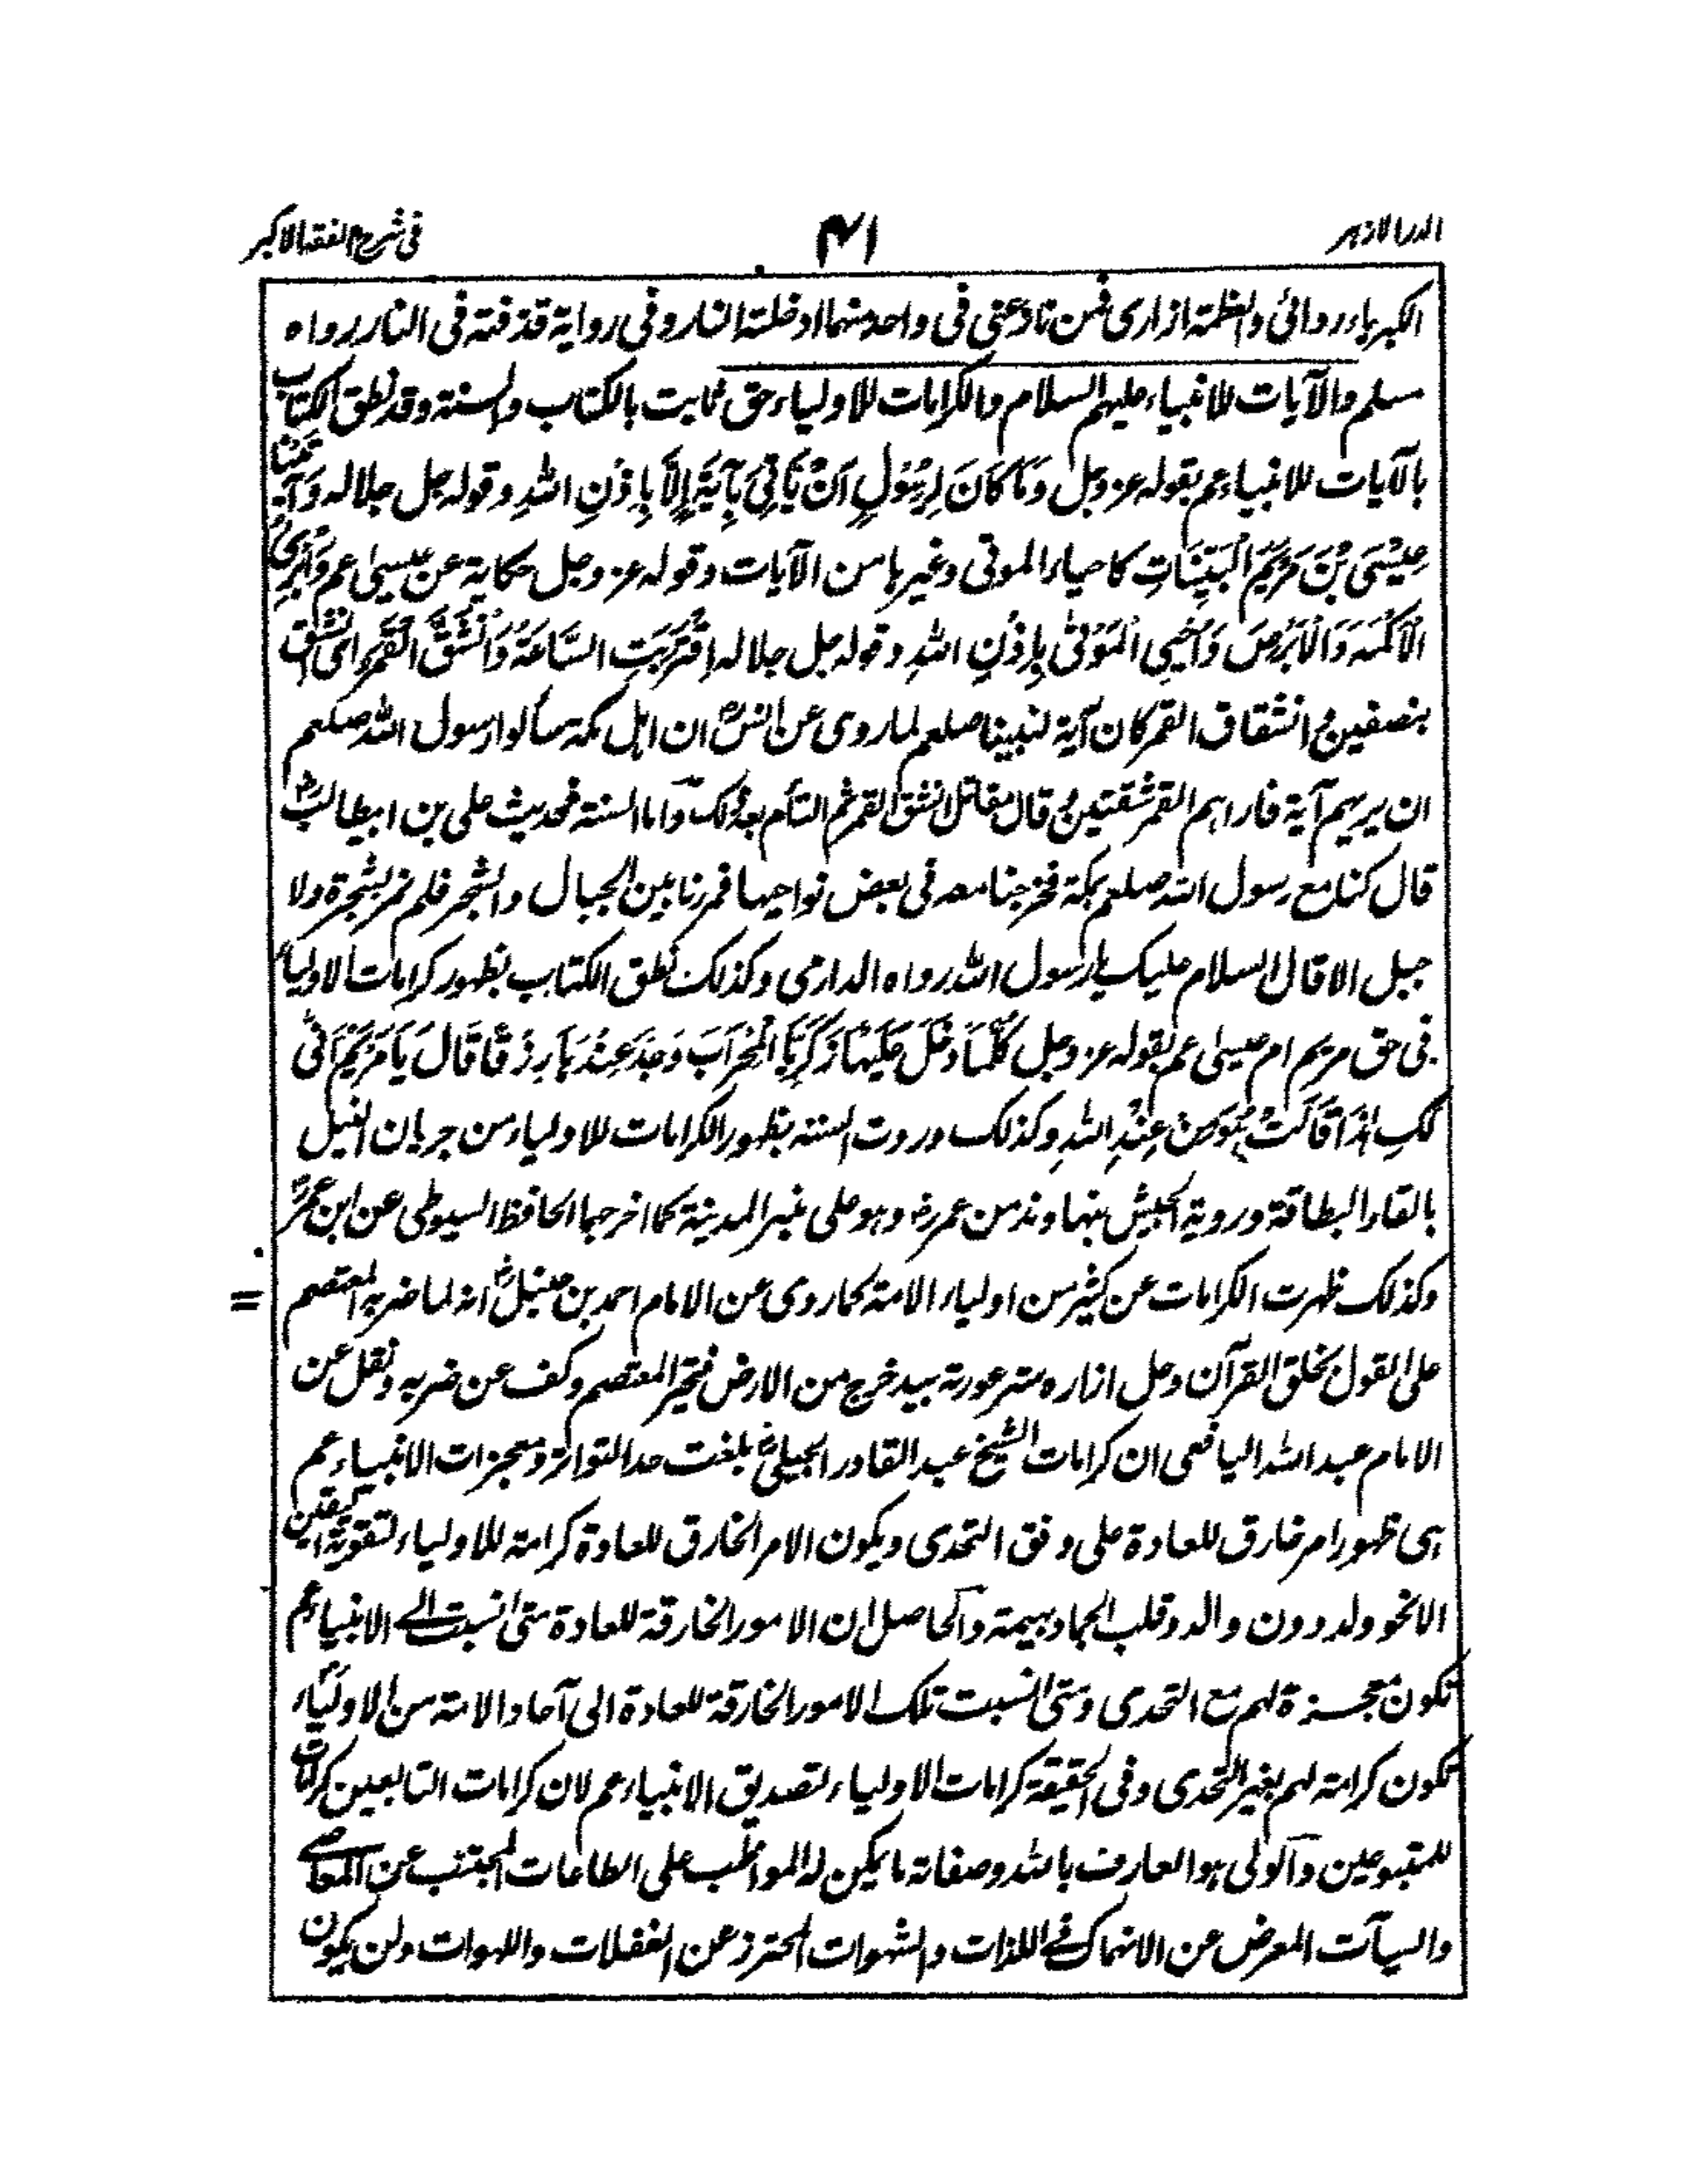 الدر الازهر ۴۱ فى شرح الفقه الاكبر
الكبرياء ردائى والعظمة ازارى فمن نازعنى فى واحد منهما ادخلته النار وفى رواية قذفته فى النار رواه
مسلم والآيات للانبياء عليهم السلام والكرامات للاولياء حق ثابت بالكتاب والسنة وقد نطق الكتاب
بالآيات للانبياء عم بقوله عز وجل وَمَا كَانَ لِرَسُوْلٍ اَنْ يَّاْتِىَ بِآيَةٍ اِلَّا بِاِذْنِ اللّٰهِ وقوله جل جلاله وَآتَيْنَا
عِيْسَى بْنَ مَرْيَمَ الْبَيِّنَاتِ كاحياء الموتى وغيرها من الآيات وقوله عز وجل حكاية عن عيسىٰ عم وَاُبْرِئُ
الْاَكْمَهَ وَالْاَبْرَصَ وَاُحْيِى الْمَوْتٰى بِاِذْنِ اللّٰهِ وقوله جل جلاله اِقْتَرَبَتِ السَّاعَةُ وَانْشَقَّ الْقَمَرُ اى انشق
بنصفين وانشقاق القمر كان آية لنبينا صلعم لما روى عن انس ان اهل مكة سألوا رسول الله صلعم
ان يريهم آية فاراهم القمر شقتين وقال مقاتل انشق القمر ثم التأم بعد ذلك واما السنة فحديث على بن ابيطالب
قال كنا مع رسول الله صلعم بمكة فخرجنا معه فى بعض نواحيها فمررنا بين الجبال والشجر فلم نمر بشجرة ولا
جبل الا قال السلام عليك يا رسول الله رواه الدارمى وكذلك نطق الكتاب بظهور كرامات الاولياء
فى حق مريم ام عيسىٰ عم بقوله عز وجل كُلَّمَا دَخَلَ عَلَيْهَا زَكَرِيَّا الْمِحْرَابَ وَجَدَ عِنْدَهَا رِزْقًا قَالَ يَا مَرْيَمُ اَنّٰى
لَكِ هٰذَا قَالَتْ هُوَ مِنْ عِنْدِ اللّٰهِ وكذلك وردت السنة بظهور الكرامات للاولياء من جريان النيل
بالقاء البطاقة وروية الجيش بنهاوند من عمر رض وهو على منبر المدينة كما اخرجها الحافظ السيوطى عن ابن عمر
وكذلك ظهرت الكرامات عن كثير من اولياء الامة كما روى عن الامام احمد بن حنبل انه لما ضربه المعتصم
على القول بخلق القرآن وحل ازاره ستر عورته بيد خرج من الارض فتحير المعتصم وكف عن ضربه ونقل عن
الامام عبد الله اليافعى ان كرامات الشيخ عبد القادر الجيلى بلغت حد التواتر ومعجزات الانبياء عم
هى ظهور امر خارق للعادة على وفق التحدى ويكون الامر الخارق للعادة كرامة للاولياء لتقوية اليقين
الا نحو ولد دون والد وقلب الجماد بهيمة والحاصل ان الامور الخارقة للعادة متى انسبت الى الانبياء عم
تكون معجزة لهم مع التحدى ومتى انسبت تلك الامور الخارقة للعادة الى آحاد الامة من الاولياء
تكون كرامة لهم بغير التحدى وفى الحقيقة كرامات الاولياء لتصديق الانبياء عم لان كرامات التابعين كرامات
للمتبوعين والولى هو العارف بالله وصفاته ما يمكن له المواظب على الطاعات المجتنب عن المعاصى
والسيآت المعرض عن الانهماك فى اللذات والشهوات المحترز عن الغفلات واللهوات ولن يكون